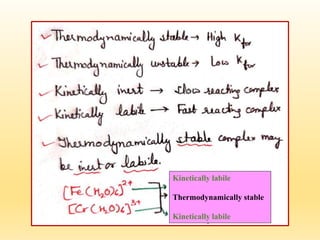 ✓ Thermodynamically stable → High Kfor
✓ Thermodynamically unstable → Low Kfor
✓ Kinetically inert → Slow reacting complex
✓ Kinetically labile → Fast reacting complex
✓ Thermodynamically stable complex may
be inert or labile.
[Fe(H2O)6]2+
[Cr(H2O)6]3+
Kinetically labile
Thermodynamically stable
Kinetically labile